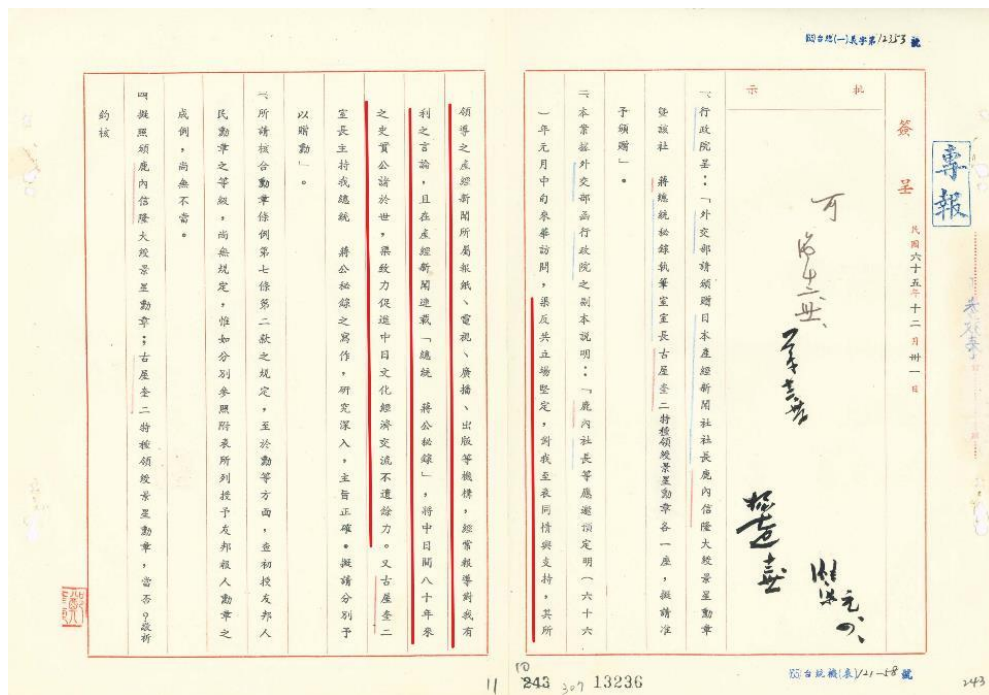 (65)台統(一)美字第12353號
專報
簽呈
民國六十五年十二月卅一日
批示
可
一、行政院呈:「外交部請頒贈日本產經新聞社社長鹿內信隆大綬景星勳章
暨該社 蔣總統秘錄執筆室室長古屋奎二特種領綬景星勳章各一座,擬請准
予頒贈」。
二、本案據外交部函行政院之副本說明:「鹿內社長等應邀預定明(六十六
)年元月中旬來華訪問,渠反共立場堅定,對我至表同情與支持,其所
領導之產經新聞所屬報紙、電視、廣播、出版等機構,經常報導對我有
利之言論,且在產經新聞連載「總統 蔣公秘錄」,將中日間八十年來
之史實公諸於世,渠致力促進中日文化經濟交流不遺餘力。又古屋奎二
室長主持我總統 蔣公秘錄之寫作,研究深入,主旨正確。擬請分別予
以贈勳」。
三、所請核合勳章條例第七條第二款之規定,至於勳等方面,查初授友邦人
民勳章之等級,尚無規定,惟如分別參照附表所列授予友邦報人勳章之
成例,尚無不當。
四、擬照頒鹿內信隆大綬景星勳章;古屋奎二特種領綬景星勳章,當否?敬祈
鈞核
(65)台統機(表)121-58號
11
243
307
13236
243